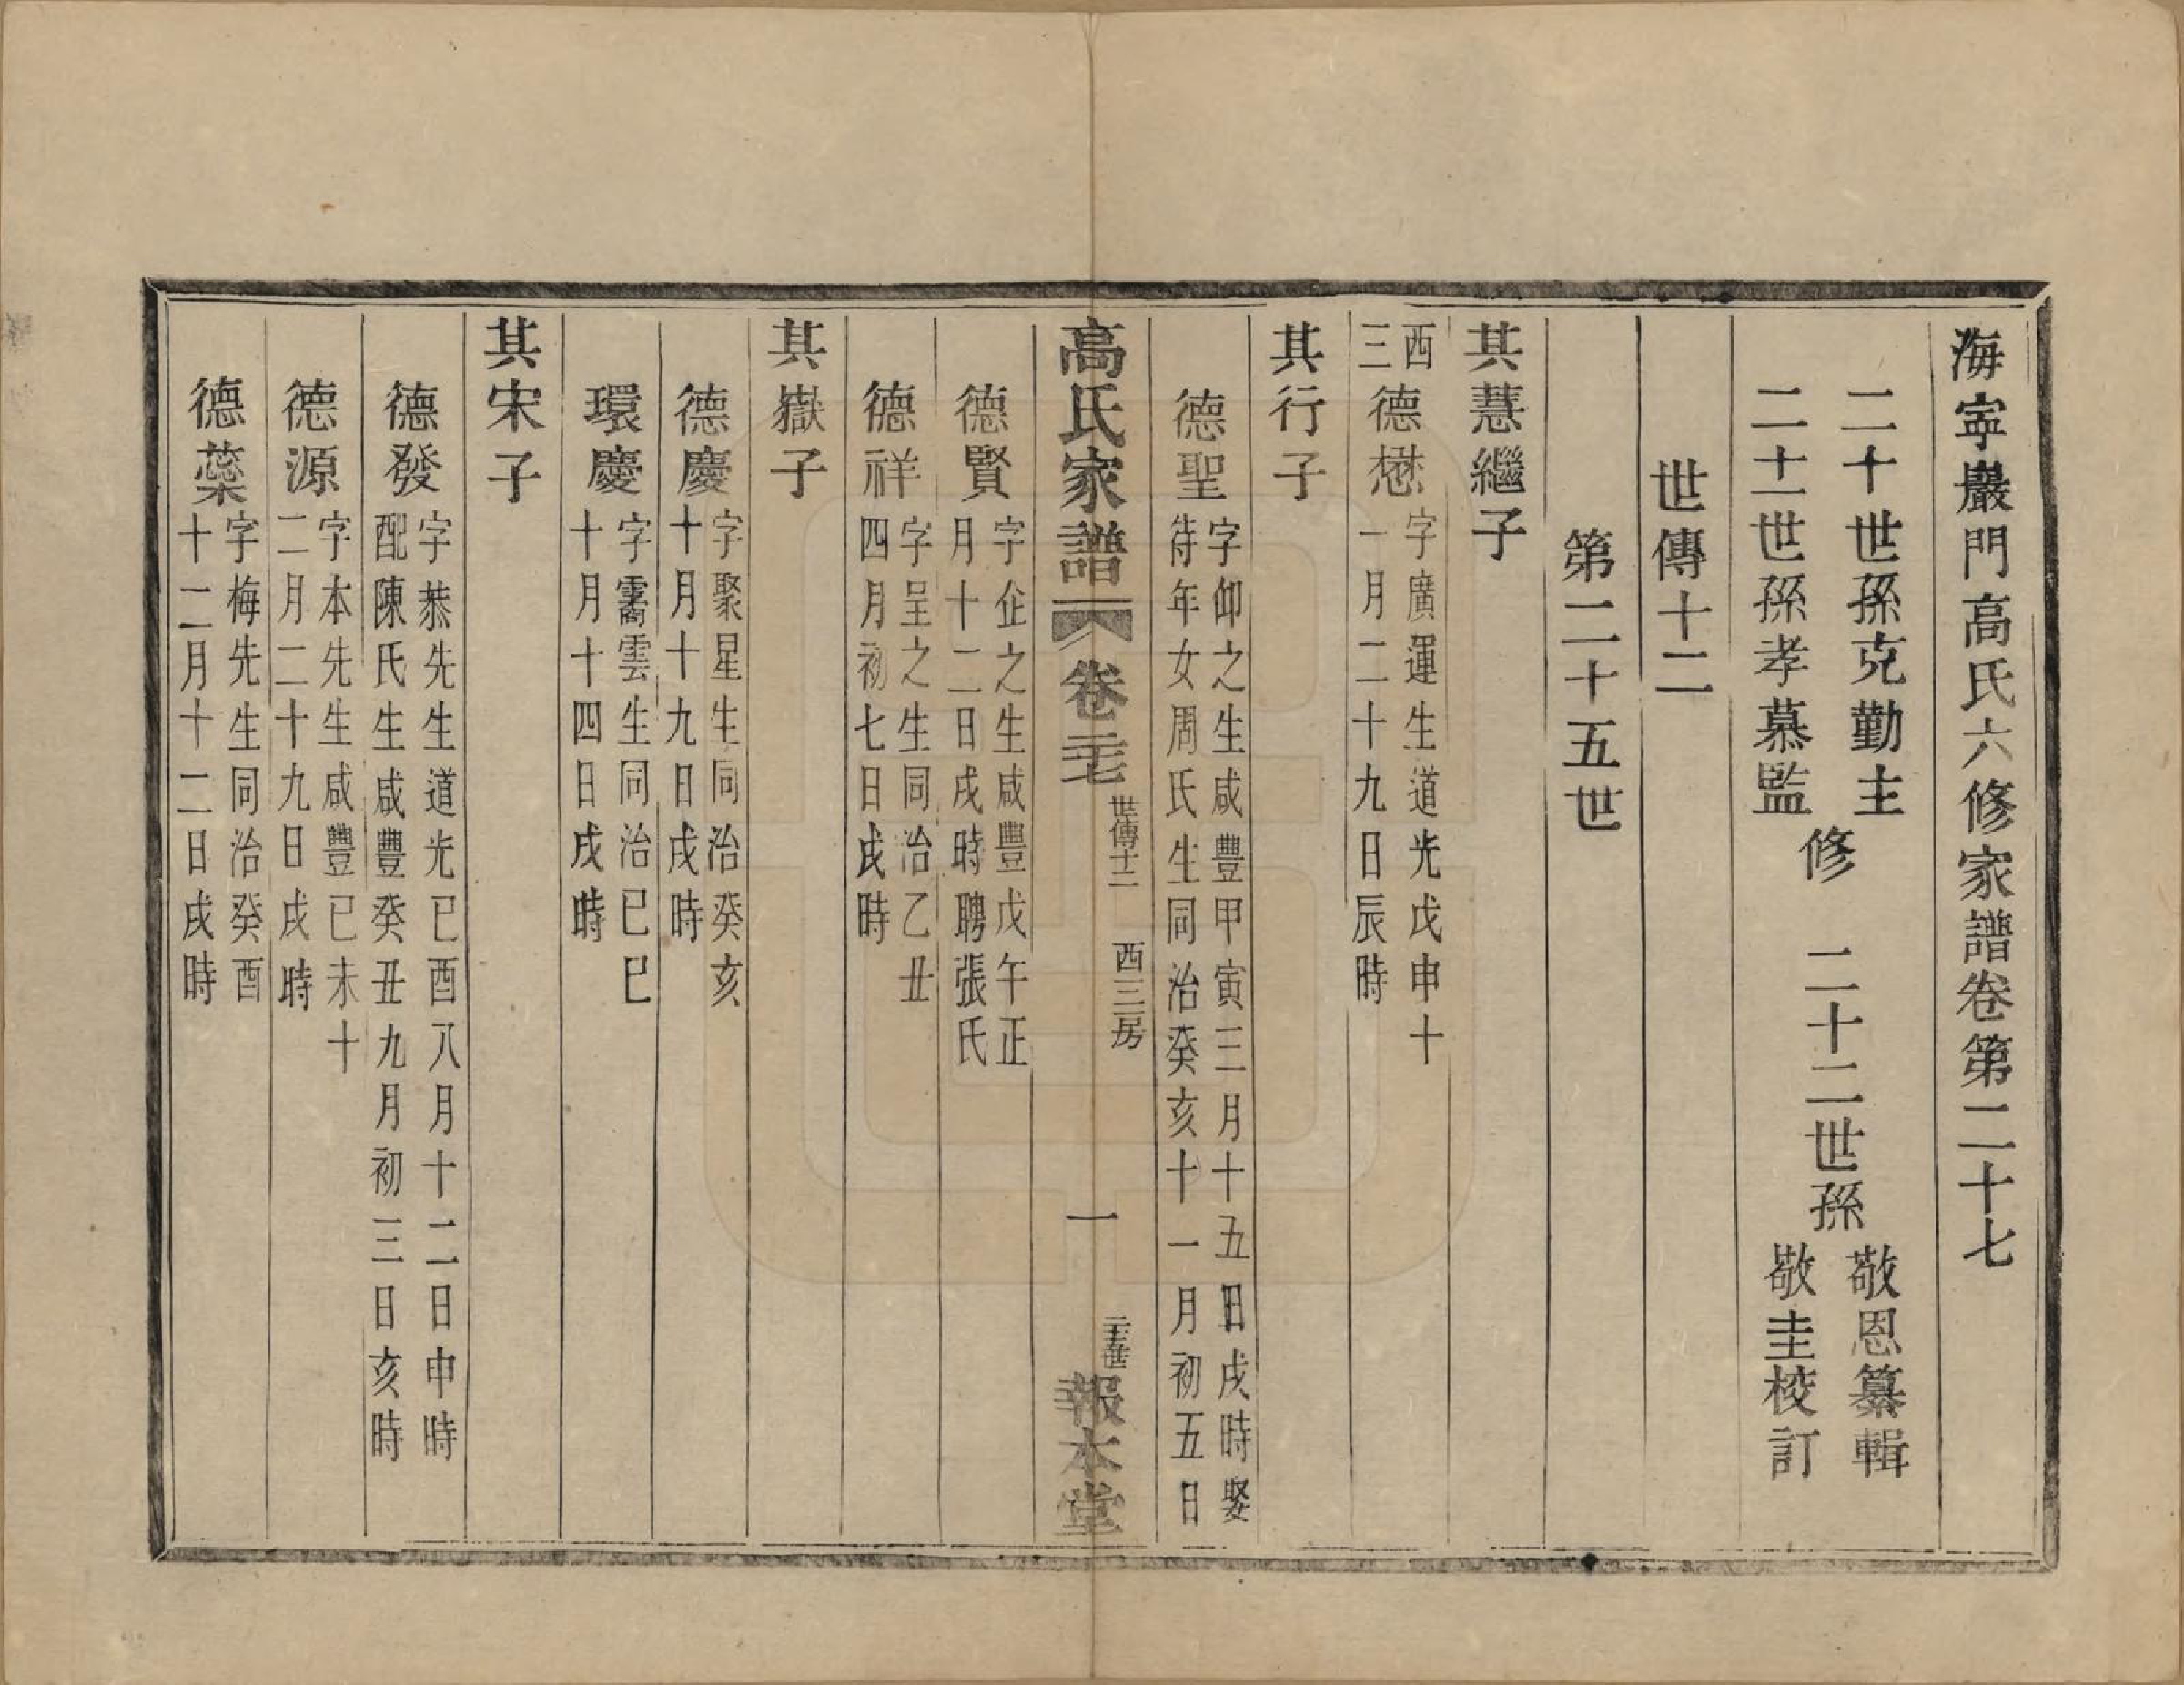 海寧巖門高氏六修家譜卷第二十七
二十世孫克勤主
二十一世孫孝慕監
修
二十二世孫
敬恩纂輯
敬圭校訂
世傳十二
第二十五世
其慧繼子
西三
德懋
字廣運生道光戊申十
一月二十九日辰時
其行子
德聖
字仰之生咸豐甲寅三月十五日戌時娶
待年女周氏生同治癸亥十一月初五日
高氏家譜
卷二十七
世傳十二
西三房
一
二十五世
報本堂
德賢
字企之生咸豐戊午正
月十二日戌時聘張氏
德祥
字呈之生同治乙丑
四月初七日戌時
其嶽子
德慶
字聚星生同治癸亥
十月十九日戌時
環慶
字雲生同治己巳
十月十四日戌時
其宋子
德發
字恭先生道光己酉八月十二日申時
配陳氏生咸豐癸丑九月初三日亥時
德源
字本先生咸豐己未十
二月二十九日戌時
德蘂
字梅先生同治癸酉
十二月十二日戌時